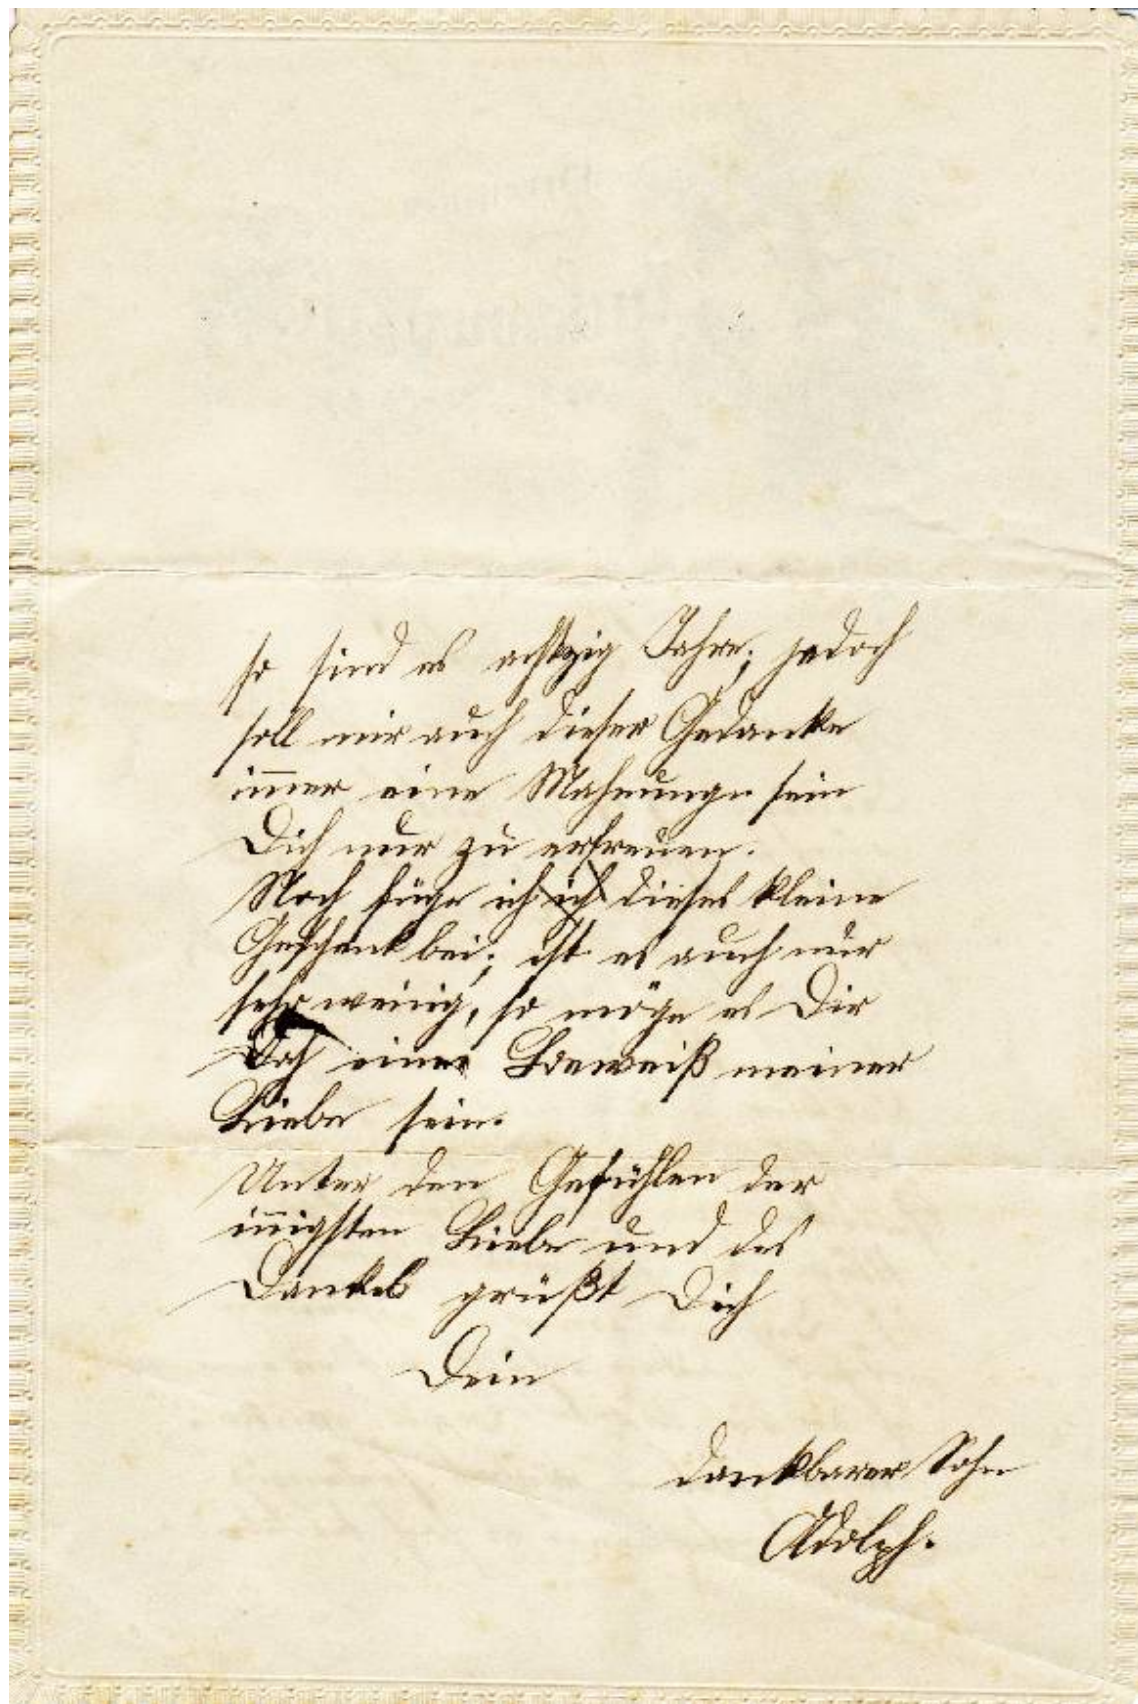 so sind es achtzig Jahre; jedoch
soll mir auch dieser Gedanke
im̅er eine Mahnung sein
Dich nur zu erfreuen.
Noch füge ich ich dieses kleine
Geschenk bei; ist es auch nur
sehr wenig, so möge es Dir
Doch einen Beweiß meiner
Liebe sein.
Unter den Gefühlen der
in̅igsten Liebe und des
Dankes grüßt Dich
Dein
dankbarer Sohn
Adolph.